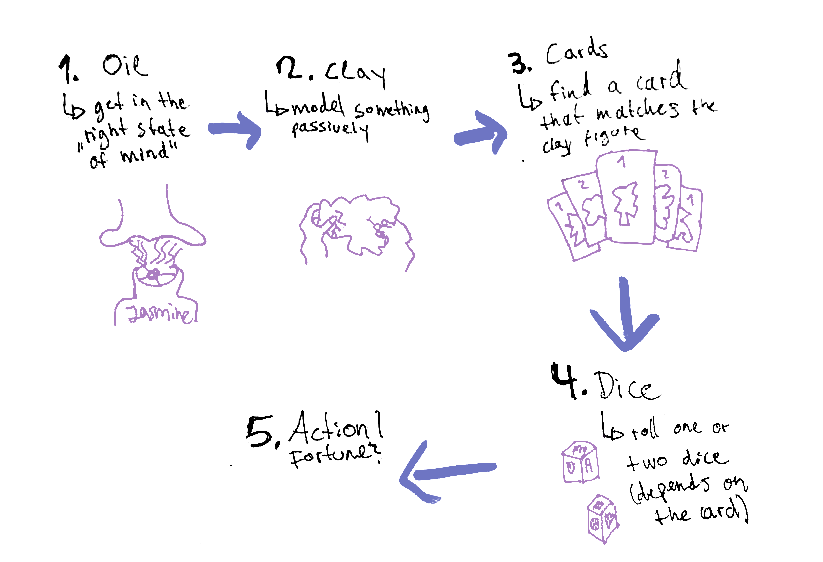 1. Oil
↳ get in the
„right state
of mind"
2. Clay
↳ model something
passively
3. Cards
↳ find a card
that matches the
clay figure
1
2
1
2
1
Jasmine
4. Dice
↳ roll one or
two dice
(depends on
the card)
5. Action!
Fortune?